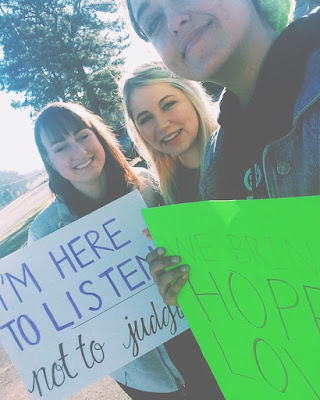 I'M HERE
TO LISTEN
not to judge
WE BRING
HOPE
LOVE